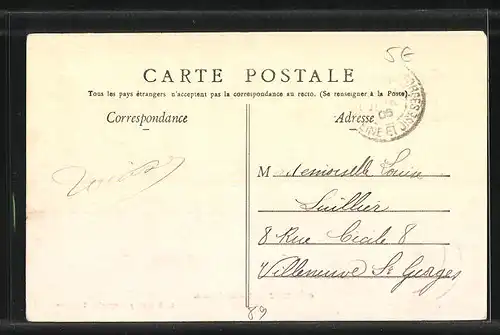 5E
CARTE POSTALE
Tous les pays étrangers n'acceptent pas la correspondance au recto. (Se renseigner à la Poste).
Correspondance
Adresse
Mademoiselle Louise
8 Rue Cécile 8
Villeneuve St Georges
89